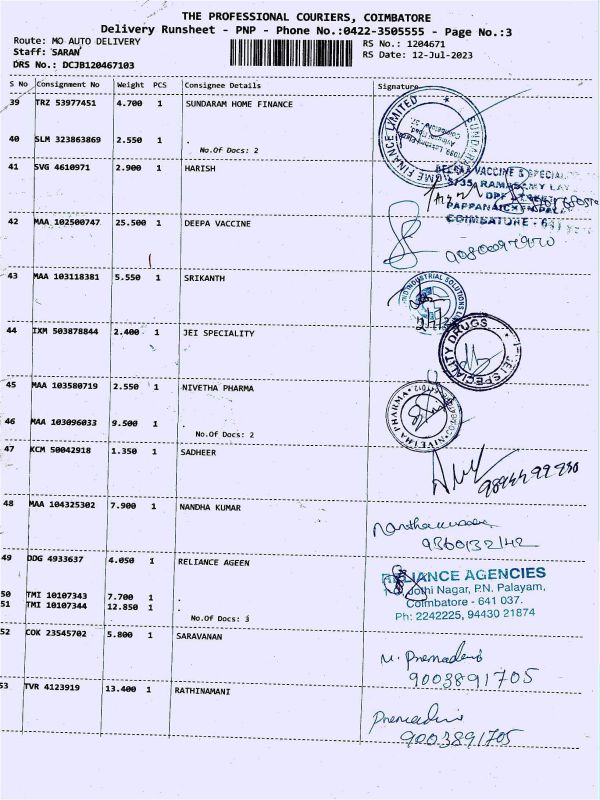 THE PROFESSIONAL COURIERS, COIMBATORE
Delivery Runsheet - PNP - Phone No.:0422-3505555 - Page No.:3
Route: MO AUTO DELIVERY RS No.: 1204671
Staff: SARAN RS Date: 12-Jul-2023
DRS No.: DCJB120467103
S No Consignment No Weight PCS Consignee Details Signature
39 TRZ 53977451 4.700 1 SUNDARAM HOME FINANCE
40 SLM 323863869 2.550 1 .
No.Of Docs: 2
41 SVG 4610971 2.900 1 HARISH
VACCINE & SPECIAL
5/35, RAMASAMY LAY
OPP
PAPPANAICKENPALA
COIMBATORE - 641
42 MAA 102500747 25.500 1 DEEPA VACCINE
43 MAA 103118381 5.550 1 SRIKANTH
INDUSTRIAL SOLUTIONS
44 IXM 503878844 2.400 1 JEI SPECIALITY
JEI SPECIALITY DRUGS
45 MAA 103580719 2.550 1 NIVETHA PHARMA
NIVETHA PHARMA
46 MAA 103096033 9.500 1 .
No.Of Docs: 2
47 KCM 50042918 1.350 1 SADHEER
48 MAA 104325302 7.900 1 NANDHA KUMAR
Nandhakumar
9360132142
49 DDG 4933637 4.050 1 RELIANCE AGEEN
RELIANCE AGENCIES
Jothi Nagar, P.N. Palayam,
Coimbatore - 641 037.
Ph: 2242225, 94430 21874
50 TMI 10107343 7.700 1 .
51 TMI 10107344 12.850 1 .
No.Of Docs: 3
52 COK 23545702 5.800 1 SARAVANAN
M. Premadevi
9003891705
53 TVR 4123919 13.400 1 RATHINAMANI
Premadevi
9003891705